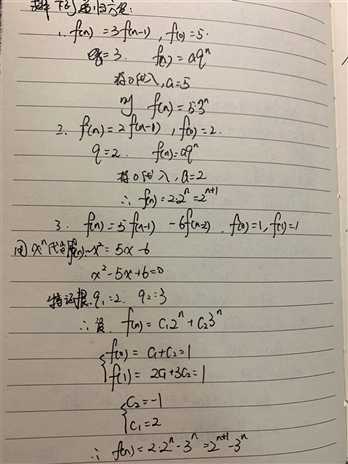 求解下列递归方程:
1. f(n)=3f(n-1), f(0)=5.
q=3. f(n)=aqⁿ
将0代入, a=5
则 f(n)=5·3ⁿ
2. f(n)=2f(n-1), f(0)=2.
q=2. f(n)=aqⁿ
将0代入, a=2
∴ f(n)=2·2ⁿ=2ⁿ⁺¹
3. f(n)=5f(n-1)-6f(n-2). f(0)=1, f(1)=1
用xⁿ代替f(n) x²=5x-6
x²-5x+6=0
特征根 q₁=2. q₂=3
∴设 f(n)=C₁2ⁿ+C₂3ⁿ
f(0)=C₁+C₂=1
f(1)=2C₁+3C₂=1
C₂=-1
C₁=2
∴ f(n)=2·2ⁿ-3ⁿ=2ⁿ⁺¹-3ⁿ